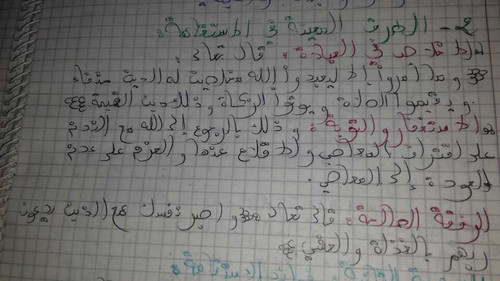 2- الطرق المعينة على الاستقامة:
الإخلاص في العبادة: قال تعالى:
﴿وما أمروا إلا ليعبدوا الله مخلصين له الدين حنفاء
ويقيموا الصلاة ويؤتوا الزكاة وذلك دين القيمة﴾
والاستغفار والتوبة: وذلك بالرجوع إلى الله مع الندم
على اقتراف المعاصي والإقلاع عنها والعزم على عدم
العودة إلى المعاصي.
الرفقة الصالحة: قال تعالى ﴿واصبر نفسك مع الذين يدعون
ربهم بالغداة والعشي﴾